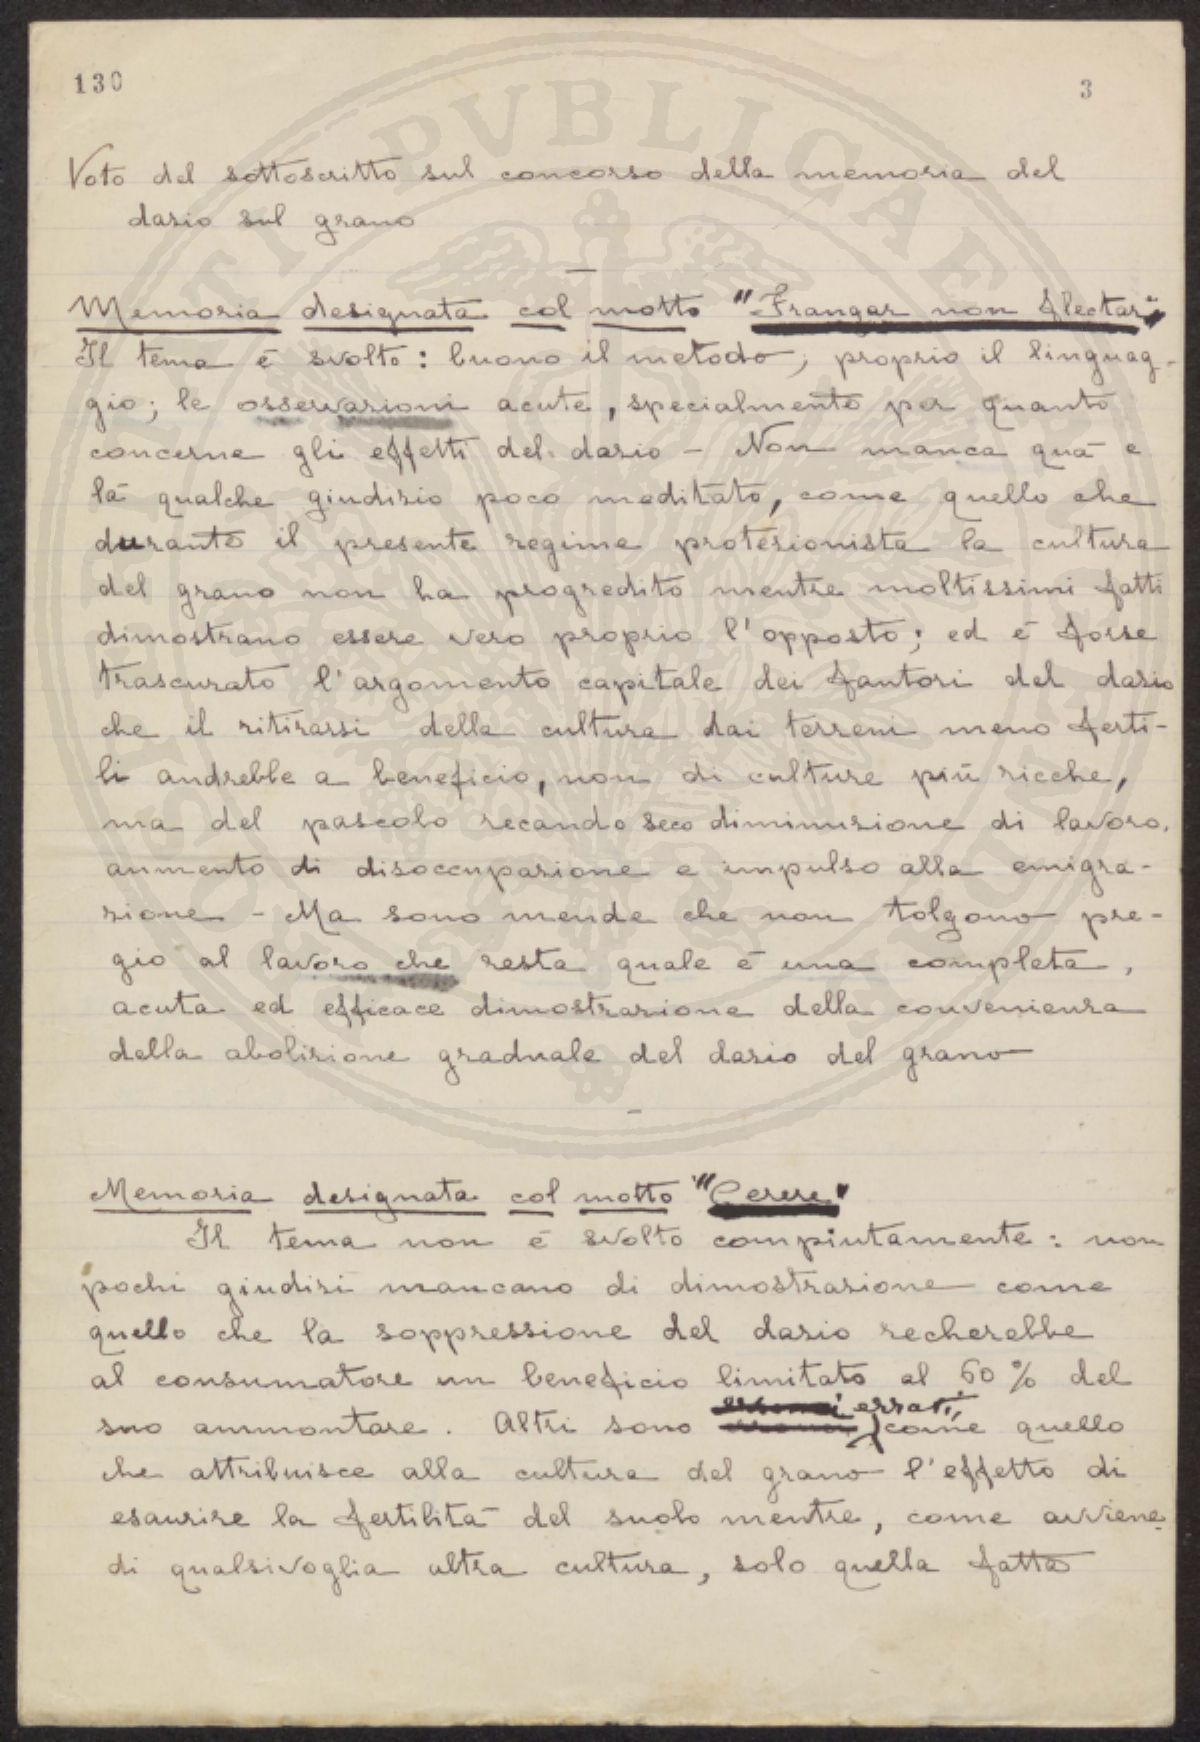 130
3
Voto del sottoscritto sul concorso della memoria del
dazio sul grano
Memoria designata col motto "Frangar non flectar"
Il tema è svolto: buono il metodo; proprio il linguag-
gio; le osservazioni acute, specialmente per quanto
concerne gli effetti del dazio - Non manca quà e
là qualche giudizio poco meditato, come quello che
durante il presente regime protezionista la cultura
del grano non ha progredito mentre moltissimi fatti
dimostrano essere vero proprio l'opposto; ed è forse
trascurato l'argomento capitale dei fautori del dazio
che il ritirarsi della cultura dai terreni meno ferti-
li andrebbe a beneficio, non di culture più ricche,
ma del pascolo recando seco diminuzione di lavoro,
aumento di disoccupazione e impulso alla emigra-
zione - Ma sono mende che non tolgono pre-
gio al lavoro che resta quale è una completa,
acuta ed efficace dimostrazione della convenienza
della abolizione graduale del dazio del grano
Memoria designata col motto "Cerere"
Il tema non è svolto compiutamente: non
pochi giudizi mancano di dimostrazione come
quello che la soppressione del dazio recherebbe
al consumatore un beneficio limitato al 60% del
suo ammontare. Altri sono errati, come quello
che attribuisce alla cultura del grano l'effetto di
esaurire la fertilità del suolo mentre, come avviene
di qualsivoglia altra cultura, solo quella fatta